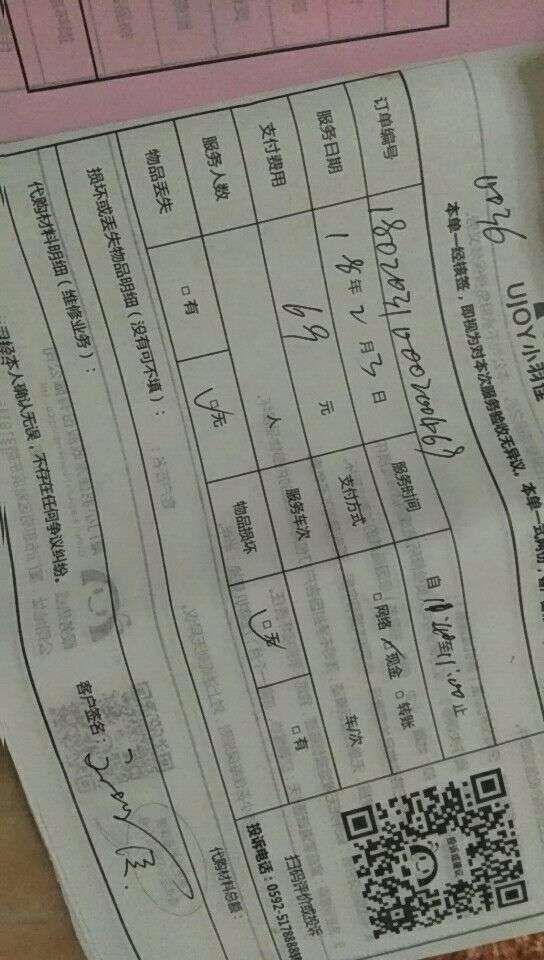 UJOY小羽佳
0036
本单一经接签，即视为对本次服务验收无异议。本单一式两份，
订单编号
服务时间 自 至11:00止
服务日期 18年2月3日
支付方式 □网络 ☑现金 □转账
支付费用 69元
服务车次 车/次
服务人数 人
物品丢失 □有 ☑无
物品损坏 ☑无 □有
损坏或丢失物品明细（没有可不填）：
代购材料明细（维修业务）：
代购材料总额：
经本人确认无误，不存在任何争议纠纷。
客户签名：
投诉或建议
扫码评价或投诉
投诉电话：0592-5178888